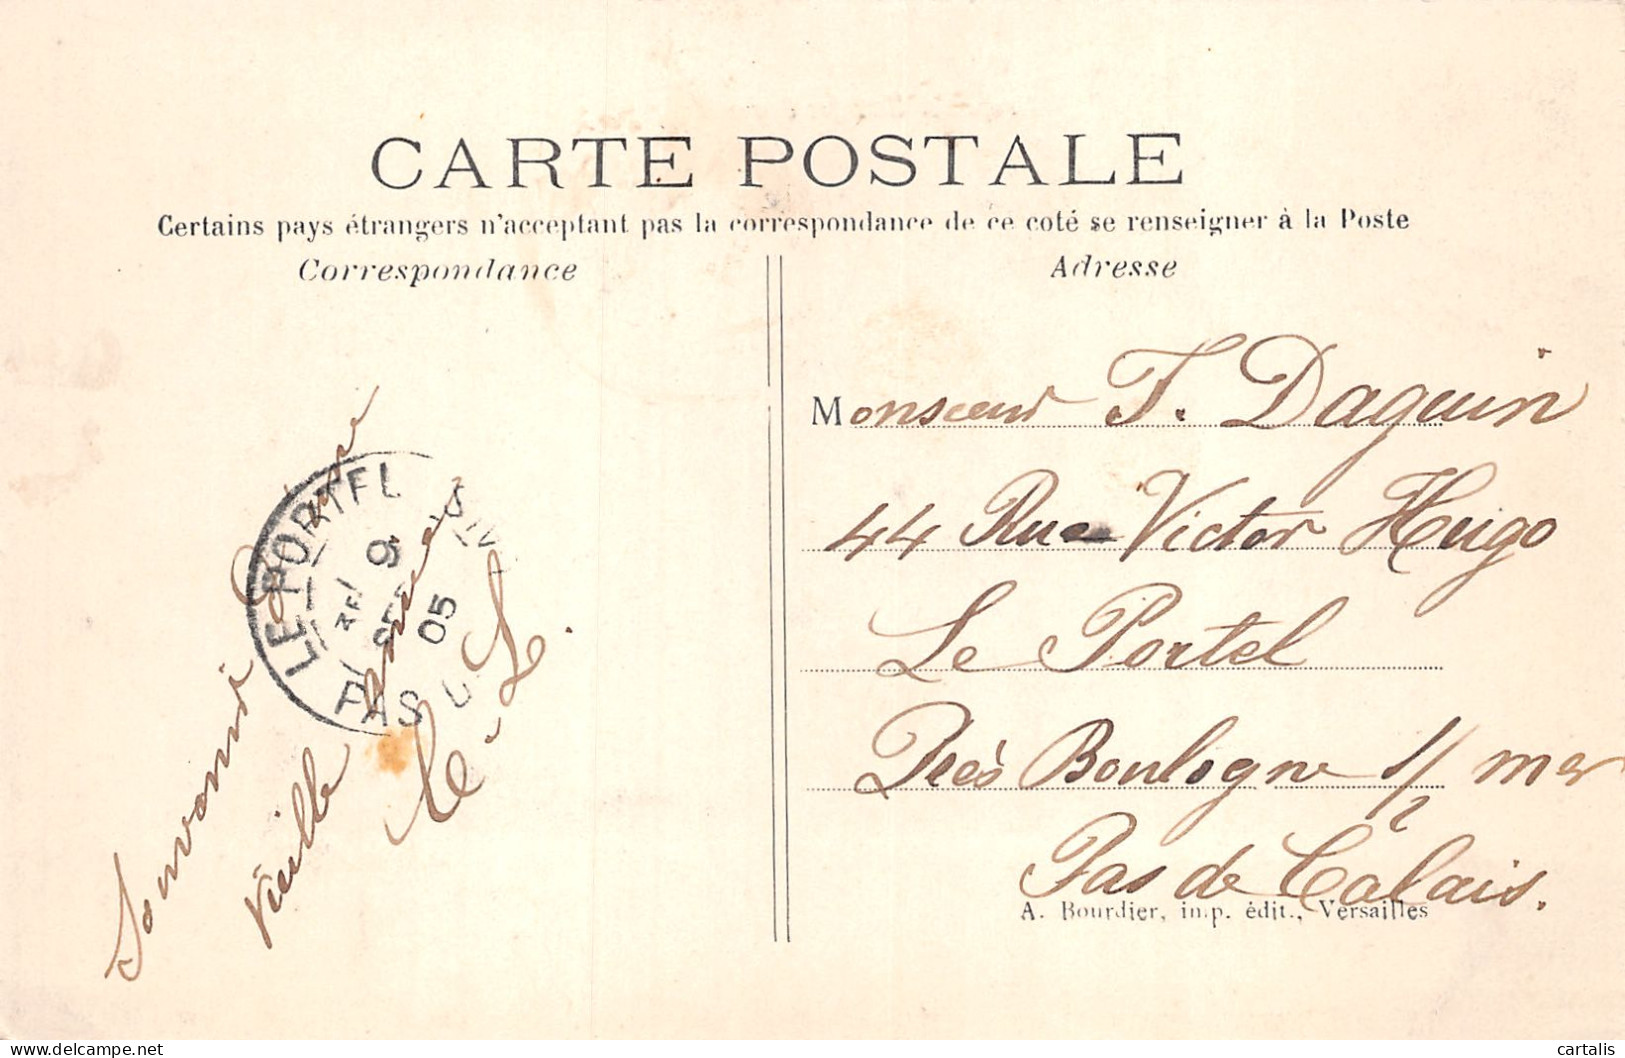 CARTE POSTALE
Certains pays étrangers n'acceptant pas la correspondance de ce coté se renseigner à la Poste
Correspondance
Adresse
Monsieur F. Daquin
44 Rue Victor Hugo
Le Portel
Près Boulogne s/ mer
Pas de Calais.
A. Bourdier, imp. édit., Versailles
Souvenir
Vieille
LE PORTEL
9
SEPT
05
PAS
delcampe.net
cartalis